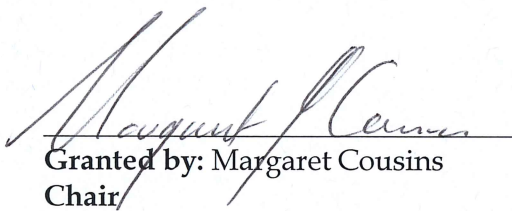 Margaret J Cousins
Granted by: Margaret Cousins
Chair